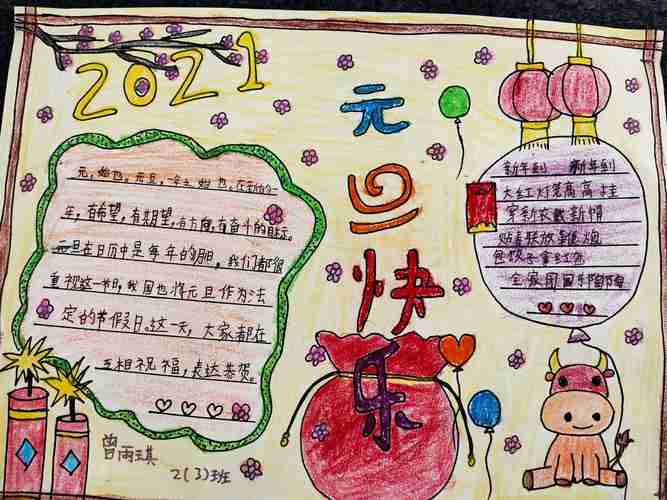 2021
元旦快乐
元，始也，元旦，一年之始也，在新的一
年，有希望，有期望，有方向，有奋斗的目标。
元旦在日历中是每年的1月1日。我们都很
重视这一节日，我国也将元旦作为法
定的节假日。这一天，大家都在
互相祝福，表达恭贺。
新年到 新年到
大红灯笼高高挂
穿新衣戴新帽
贴春联放鞭炮
包饺子拿红包
全家团圆乐陶陶
曾雨琪
2(3)班